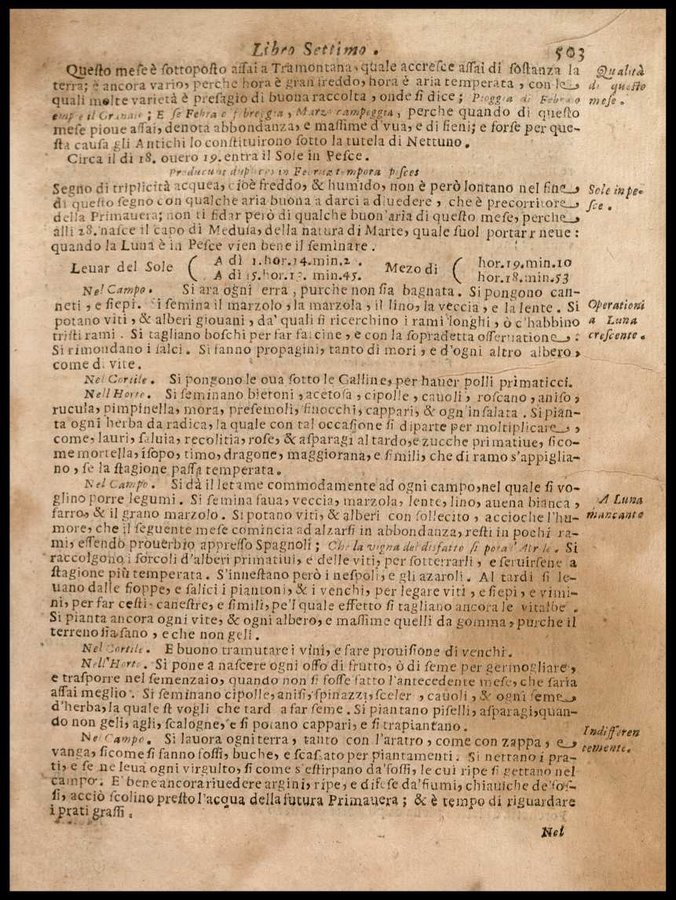 Libro Settimo. 503
Queſto meſe è ſottopoſto aſſai a Tramontana, quale accreſce aſſai di ſoſtanza la
terra; è ancora vario, perche hora è gran freddo, hora è aria temperata, con le
quali molte varietà è preſagio di buona raccolta, onde ſi dice; Pioggia di Febraro
empie il Granaio; E ſe Febra febreggia, Marzo campeggia, perche quando di queſto
meſe pioue aſſai, denota abbondanza, e maſſime d'vua, e di fieni; e forſe per que-
ſta cauſa gli Antichi lo conſtituirono ſotto la tutela di Nettuno.
Circa il di 18. ouero 19. entra il Sole in Peſce.
Producunt duplices in Februa tempora piſces
Segno di triplicità acquea, cioè freddo, & humido, non è però lontano nel fine
di queſto ſegno con qualche aria buona a darci a diuedere, che è precorritore
della Primauera; non ti fidar però di qualche buon'aria di queſto meſe, perche
alli 28. naſce il capo di Meduſa, della natura di Marte, quale ſuol portarr neue:
quando la Luna è in Peſce vien bene il ſeminare.
Leuar del Sole ( A dì 1. hor. 14. min. 2. Mezo di ( hor. 19. min. 10
A dì 15. hor. 13. min. 45. hor. 18. min. 53
Nel Campo. Si ara ogni erra, purche non ſia bagnata. Si pongono can-
neti, e ſiepi. Si ſemina il marzolo, la marzola, il lino, la veccia, e la lente. Si
potano viti, & alberi giouani, da' quali ſi ricerchino i rami longhi, ò c'habbino
triſti rami. Si tagliano boſchi per far faſcine, e con la ſopradetta oſſeruatione:
Si rimondano i ſalci. Si fanno propagini, tanto di mori, e d'ogni altro albero,
come di vite.
Nel Cortile. Si pongono le oua ſotto le Galline, per hauer polli primaticci.
Nell'Horto. Si ſeminano bietoni, acetoſa, cipolle, cauoli, roſcano, aniſo,
rucula, pimpinella, mora, preſemoli, finocchi, cappari, & ogn'inſalata. Si pian-
ta ogni herba da radica, la quale con tal occaſione ſi diparte per moltiplicare,
come, lauri, ſaluia, recolitia, roſe, & aſparagi al tardo, e zucche primatiue, ſico-
me mortella, iſopo, timo, dragone, maggiorana, e ſimili, che di ramo s'appiglia-
no, ſe la ſtagione paſſa temperata.
Nel Campo. Si dà il letame commodamente ad ogni campo, nel quale ſi vo-
glino porre legumi. Si ſemina faua, veccia, marzola, lente, lino, auena bianca,
farro, & il grano marzolo. Si potano viti, & alberi con ſollecito, accioche l'hu-
more, che il ſeguente meſe comincia ad alzarſi in abbondanza, reſti in pochi ra-
mi, eſſendo prouerbio appreſſo Spagnoli; Che la vigna del disfatto ſi pota Si
raccolgono i ſorcoli d'alberi primatiui, e delle viti, per ſotterrarli, e ſeruirſene a
ſtagione più temperata. S'inneſtano però i neſpoli, e gli azaroli. Al tardi ſi le-
uano dalle fioppe, e ſalici i piantoni, & i venchi, per legare viti, e ſiepi, e vimi-
ni, per far ceſti, caneſtre, e ſimili, pe'l quale effetto ſi tagliano ancora le vitalbe.
Si pianta ancora ogni vite, & ogni albero, e maſſime quelli da gomma, purche il
terreno ſia ſano, e che non geli.
Nel Cortile. E buono tramutare i vini, e fare prouiſione di venchi.
Nell'Horto. Si pone a naſcere ogni oſſo di frutto, ò di ſeme per germogliare,
e traſporre nel ſemenzaio, quando non ſi foſſe fatto l'antecedente meſe, che ſaria
aſſai meglio. Si ſeminano cipolle, aniſi, ſpinazzi, ſceler, cauoli, & ogni ſeme
d'herba, la quale ſt vogli che tard a far ſeme. Si piantano piſelli, aſparagi, quan-
do non geli, agli, ſcalogne, e ſi potano cappari, e ſi trapiantano.
Nel Campo. Si lauora ogni terra, tanto con l'aratro, come con zappa, e
vanga, ſicome ſi fanno foſſi, buche, e ſcaſſato per piantamenti. Si nettano i pra-
ti, e ſe ne leua ogni virgulto, ſi come s'eſtirpano da'foſſi, le cui ripe ſi gettano nel
campo. E' bene ancora riuedere argini, ripe, e difeſe da'fiumi, chiauiche de'foſ-
ſi, acciò ſcolino preſto l'acqua della futura Primauera; & è tempo di riguardare
i prati graſſi.
Nel
Qualità
di queſto
meſe.
Sole in pe-
ſce.
Operationi
a Luna
creſcente.
A Luna
mancante
Indifferen
temente.